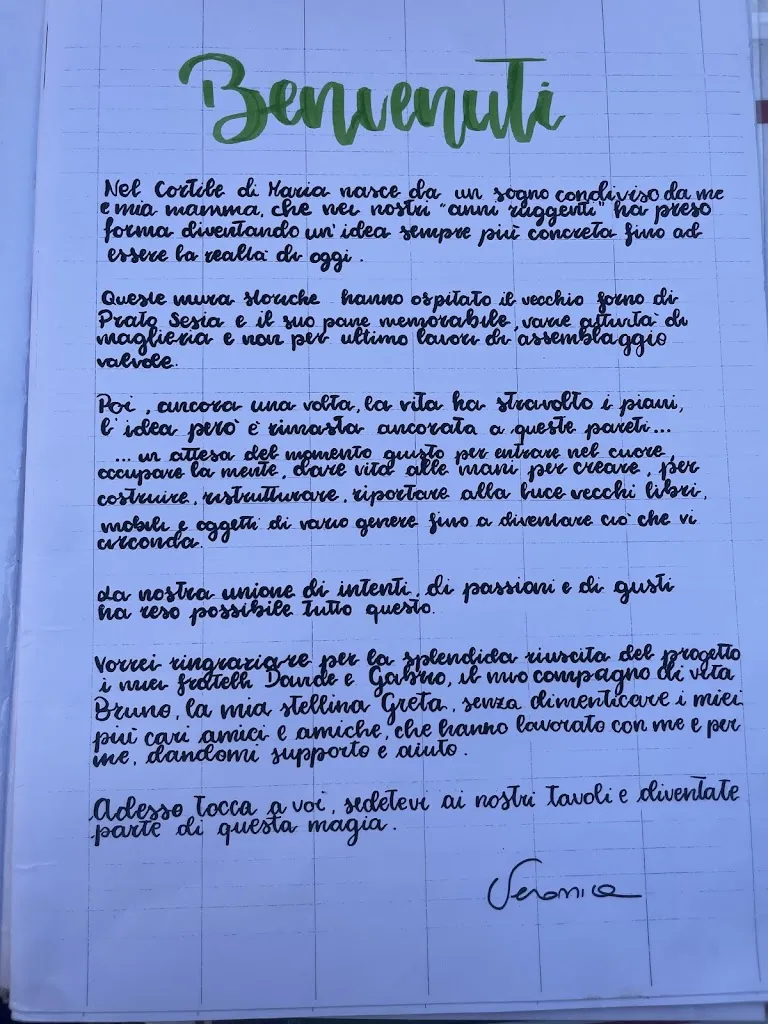 Benvenuti
Nel Cortile di Maria nasce da un sogno condiviso da me
e mia mamma, che nei nostri "anni ruggenti" ha preso
forma diventando un'idea sempre più concreta fino ad
essere la realtà di oggi.
Queste mura storiche hanno ospitato il vecchio forno di
Prato Sesia e il suo pane memorabile, varie attività di
maglieria e non per ultimo lavori di assemblaggio
valvole.
Poi, ancora una volta, la vita ha stravolto i piani,
l'idea però è rimasta ancorata a queste pareti...
... in attesa del momento giusto per entrare nel cuore,
occupare la mente, dare vita alle mani per creare, per
costruire, ristrutturare, riportare alla luce vecchi libri,
mobili e oggetti di vario genere fino a diventare ciò che vi
circonda.
La nostra unione di intenti, di passioni e di gusti
ha reso possibile tutto questo.
Vorrei ringraziare per la splendida riuscita del progetto
i miei fratelli Davide e Gabrio, il mio compagno di vita
Bruno, la mia stellina Greta, senza dimenticare i miei
più cari amici e amiche, che hanno lavorato con me e per
me, dandomi supporto e aiuto.
Adesso tocca a voi, sedetevi ai nostri tavoli e diventate
parte di questa magia.
Veronica